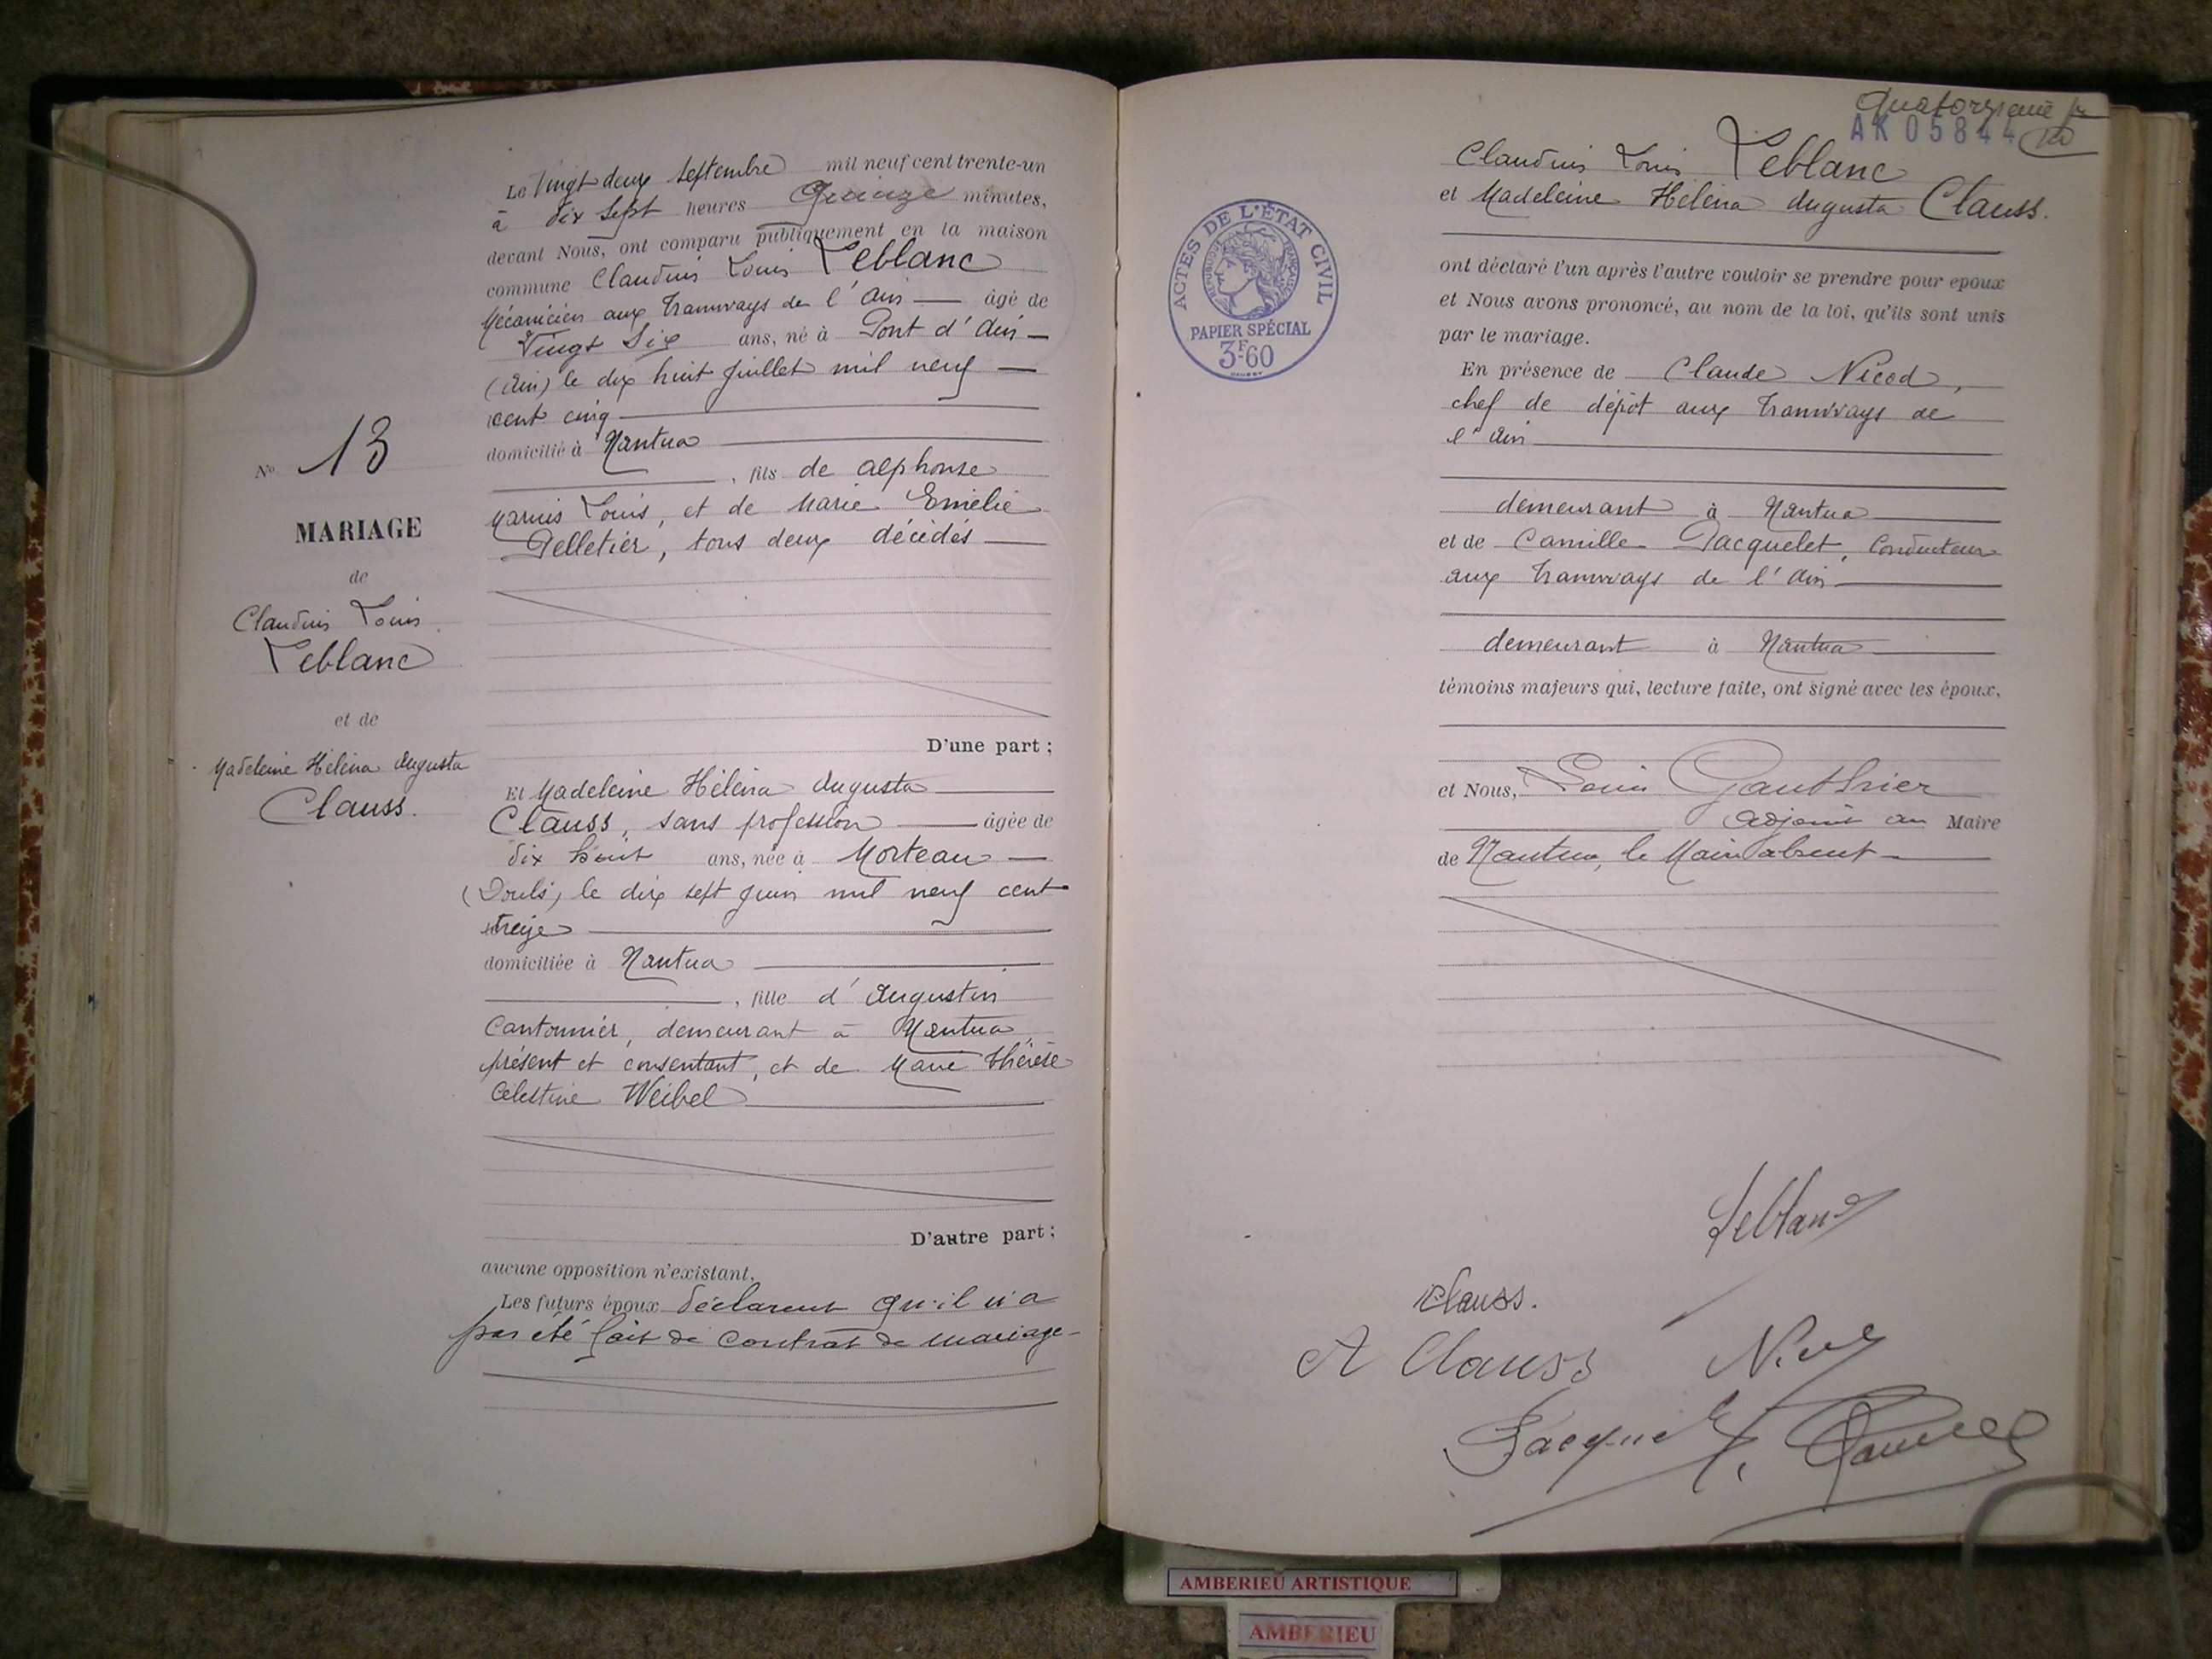 Le Vingt deux Septembre mil neuf cent trente-un
à dix sept heures Quinze minutes,
devant Nous, ont comparu publiquement en la maison
commune Claudius Louis Leblanc
Mécanicien aux Tramways de l'Ain âgé de
Vingt Six ans, né à Pont d'Ain
(Ain) le dix huit Juillet mil neuf
cent cinq
domicilié à Nantua
, fils de Alphonse
Marius Louis, et de Marie Emélie
Pelletier, tous deux décédés
No 13
MARIAGE
de
Claudius Louis
Leblanc
et de
Madeleine Héléna Augusta
Clauss.
D'une part ;
Et Madeleine Héléna Augusta
Clauss, sans profession âgée de
dix huit ans, née à Morteau
(Doubs) le dix sept Juin mil neuf cent
treize
domiciliée à Nantua
, fille d'Augustin
Cantonnier, demeurant à Nantua,
présent et consentant, et de Marie Thérèse
Célestine Weibel
D'autre part ;
aucune opposition n'existant,
Les futurs époux déclarent qu'il n'a
pas été fait de contrat de mariage
Quatorzième
AK 05844
Claudius Louis Leblanc
et Madeleine Héléna Augusta Clauss.
ACTES DE L'ÉTAT CIVIL
RÉPUBLIQUE FRANÇAISE
PAPIER SPÉCIAL
3F60
ont déclaré l'un après l'autre vouloir se prendre pour epoux
et Nous avons prononcé, au nom de la loi, qu'ils sont unis
par le mariage.
En présence de Claude Nicod,
chef de dépôt aux Tramways de
l'Ain
demeurant à Nantua
et de Camille Jacquelet, Conducteur
aux Tramways de l'Ain
demeurant à Nantua
témoins majeurs qui, lecture faite, ont signé avec les époux,
et Nous, Louis Gauthier
adjoint au Maire
de Nantua, le Maire absent
Leblanc
Clauss.
A Clauss
AMBERIEU ARTISTIQUE
AMBERIEU